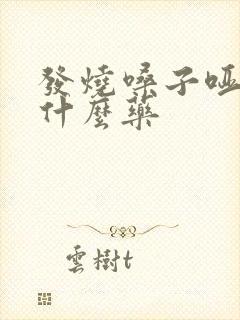 發燒嗓子啞
什麼藥
雲樹t